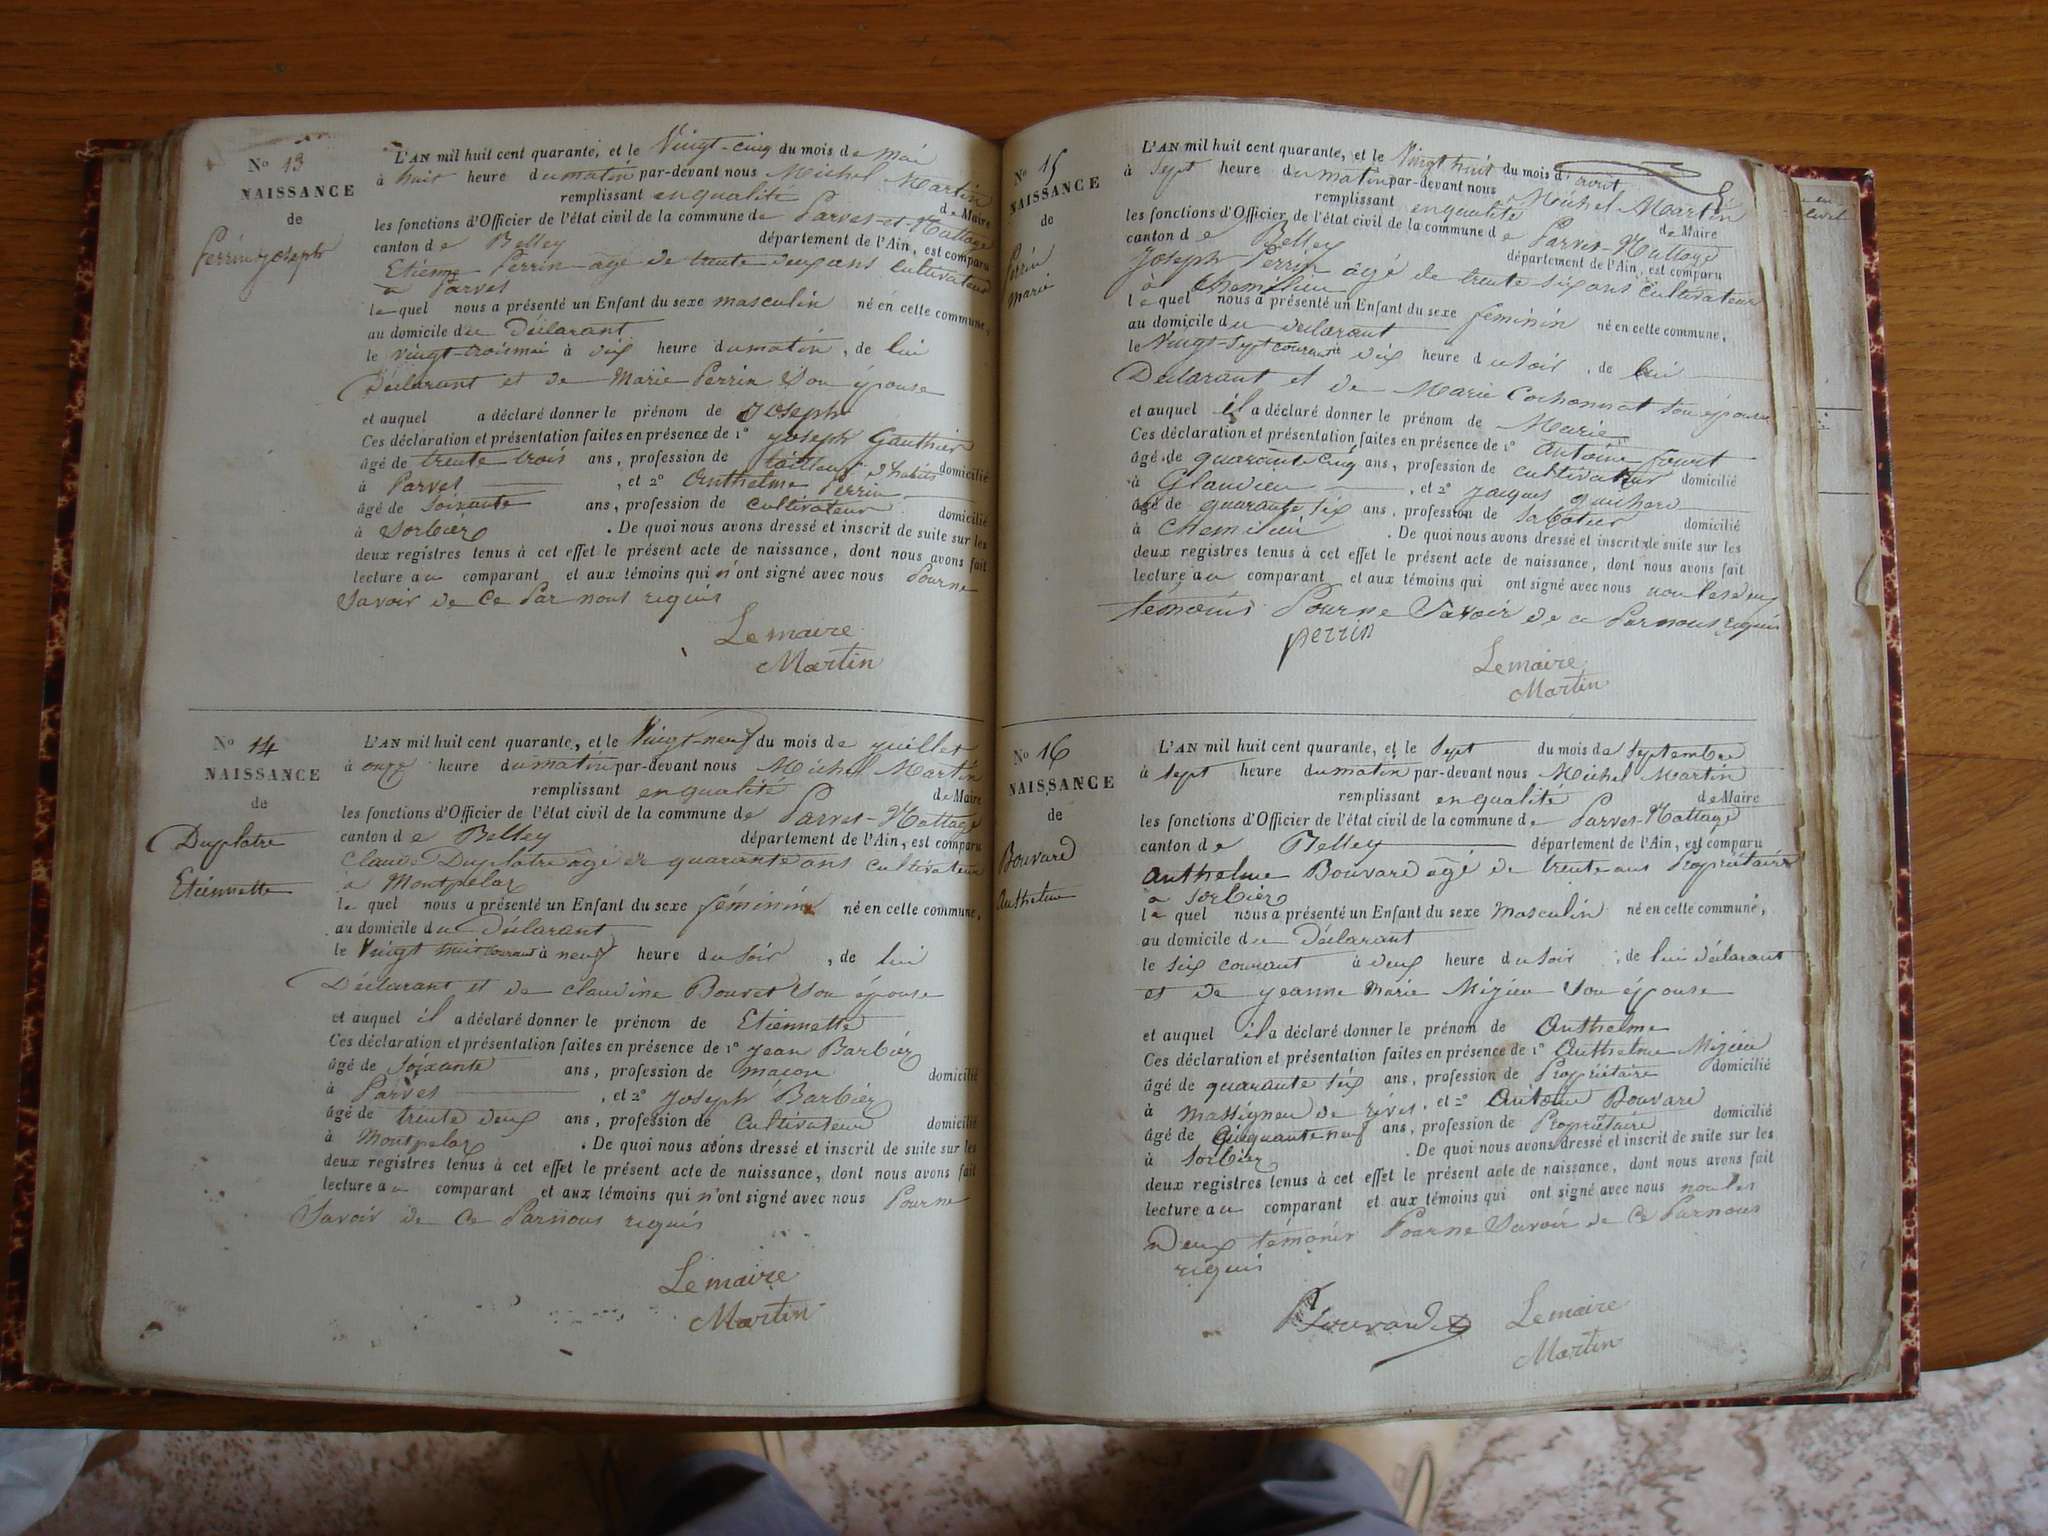 No 13
NAISSANCE
de
Perrin Joseph
L'AN mil huit cent quarante, et le Vingt-cinq du mois de mai
à huit heure du matin par-devant nous Michel Martin
remplissant en qualité de Maire
les fonctions d'Officier de l'état civil de la commune de Parves-et-Nattage
canton de Belley département de l'Ain, est comparu
Etienne Perrin agé de trente deux ans cultivateur
a Parves
lequel nous a présenté un Enfant du sexe masculin né en cette commune,
au domicile du Déclarant
le vingt-trois mai à dix heure du matin, de lui
Déclarant et de Marie Perrin Son épouse
et auquel a déclaré donner le prénom de Joseph
Ces déclaration et présentation faites en présence de 1° Joseph Gauthier
âgé de trente trois ans, profession de tailleur d'habits domicilié
à Parves, et 2° Anthelme Perrin
âgé de soixante ans, profession de cultivateur domicilié
à Sorbier. De quoi nous avons dressé et inscrit de suite sur les
deux registres tenus à cet effet le présent acte de naissance, dont nous avons fait
lecture au comparant et aux témoins qui n'ont signé avec nous Pour ne
Savoir de ce Par nous requis
Le maire
Martin
No 14
NAISSANCE
de
Duplatre
Etiennette
L'AN mil huit cent quarante, et le Vingt-neuf du mois de juillet
à onze heure du matin par-devant nous Michel Martin
remplissant en qualité de Maire
les fonctions d'Officier de l'état civil de la commune de Parves-Nattage
canton de Belley département de l'Ain, est comparu
Claude Duplatre âgé de quarante ans cultivateur
à Montpelaz
lequel nous a présenté un Enfant du sexe féminin né en cette commune,
au domicile du Déclarant
le Vingt huit courant à neuf heure du Soir, de lui
Déclarant et de claudine Bouvet Son épouse
et auquel il a déclaré donner le prénom de Etiennette
Ces déclaration et présentation faites en présence de 1° Jean Barbier
âgé de soixante ans, profession de maçon domicilié
à Parves, et 2° Joseph Barbier
âgé de trente deux ans, profession de Cultivateur domicilié
à Montpelaz. De quoi nous avons dressé et inscrit de suite sur les
deux registres tenus à cet effet le présent acte de naissance, dont nous avons fait
lecture au comparant et aux témoins qui n'ont signé avec nous Pour ne
Savoir de Ce Par nous requis
Le maire
Martin
No 15
NAISSANCE
de
Perrin
Marie
L'AN mil huit cent quarante, et le Vingt huit du mois d'avril
à sept heure du matin par-devant nous Michel Martin
remplissant en qualité de Maire
les fonctions d'Officier de l'état civil de la commune de Parves-Nattage
canton de Belley département de l'Ain, est comparu
Joseph Perrin âgé de trente six ans cultivateur
à Chemilieu
lequel nous a présenté un Enfant du sexe féminin né en cette commune,
au domicile du déclarant
le Vingt-sept courant à dix heure du soir, de lui
Déclarant et de Marie Cochonnat son épouse
et auquel il a déclaré donner le prénom de Marie
Ces déclaration et présentation faites en présence de 1° Antoine
âgé de quarante cinq ans, profession de cultivateur domicilié
à Glandieu, et 2° Jacques guichard
âgé de quarante six ans, profession de Sabotier domicilié
à Chemilieu. De quoi nous avons dressé et inscrit de suite sur les
deux registres tenus à cet effet le présent acte de naissance, dont nous avons fait
lecture au comparant et aux témoins qui ont signé avec nous non les deux
témoins Pour ne Savoir de ce Par nous requis
perrin
Le maire
Martin
No 16
NAISSANCE
de
Bouvard
Anthelme
L'AN mil huit cent quarante, et le Sept du mois de Septembre
à sept heure du matin par-devant nous Michel Martin
remplissant en qualité de Maire
les fonctions d'Officier de l'état civil de la commune de Parves-Nattage
canton de Belley département de l'Ain, est comparu
Anthelme Bouvard âgé de trente ans Propriétaire
a Sorbier
lequel nous a présenté un Enfant du sexe Masculin né en cette commune,
au domicile du Déclarant
le six courant à deux heure du soir, de lui déclarant
et de Jeanne Marie Mizieu Son épouse
et auquel il a déclaré donner le prénom de Anthelme
Ces déclaration et présentation faites en présence de 1° Anthelme Mizieu
âgé de quarante six ans, profession de Propriétaire domicilié
à Massigneu de rives, et 2° Antoine Bouvard
âgé de Cinquante neuf ans, profession de Propriétaire domicilié
à Sorbier. De quoi nous avons dressé et inscrit de suite sur les
deux registres tenus à cet effet le présent acte de naissance, dont nous avons fait
lecture au comparant et aux témoins qui ont signé avec nous non les
Deux témoins Pour ne Savoir de Ce Par nous
requis
Bouvard
Le maire
Martin